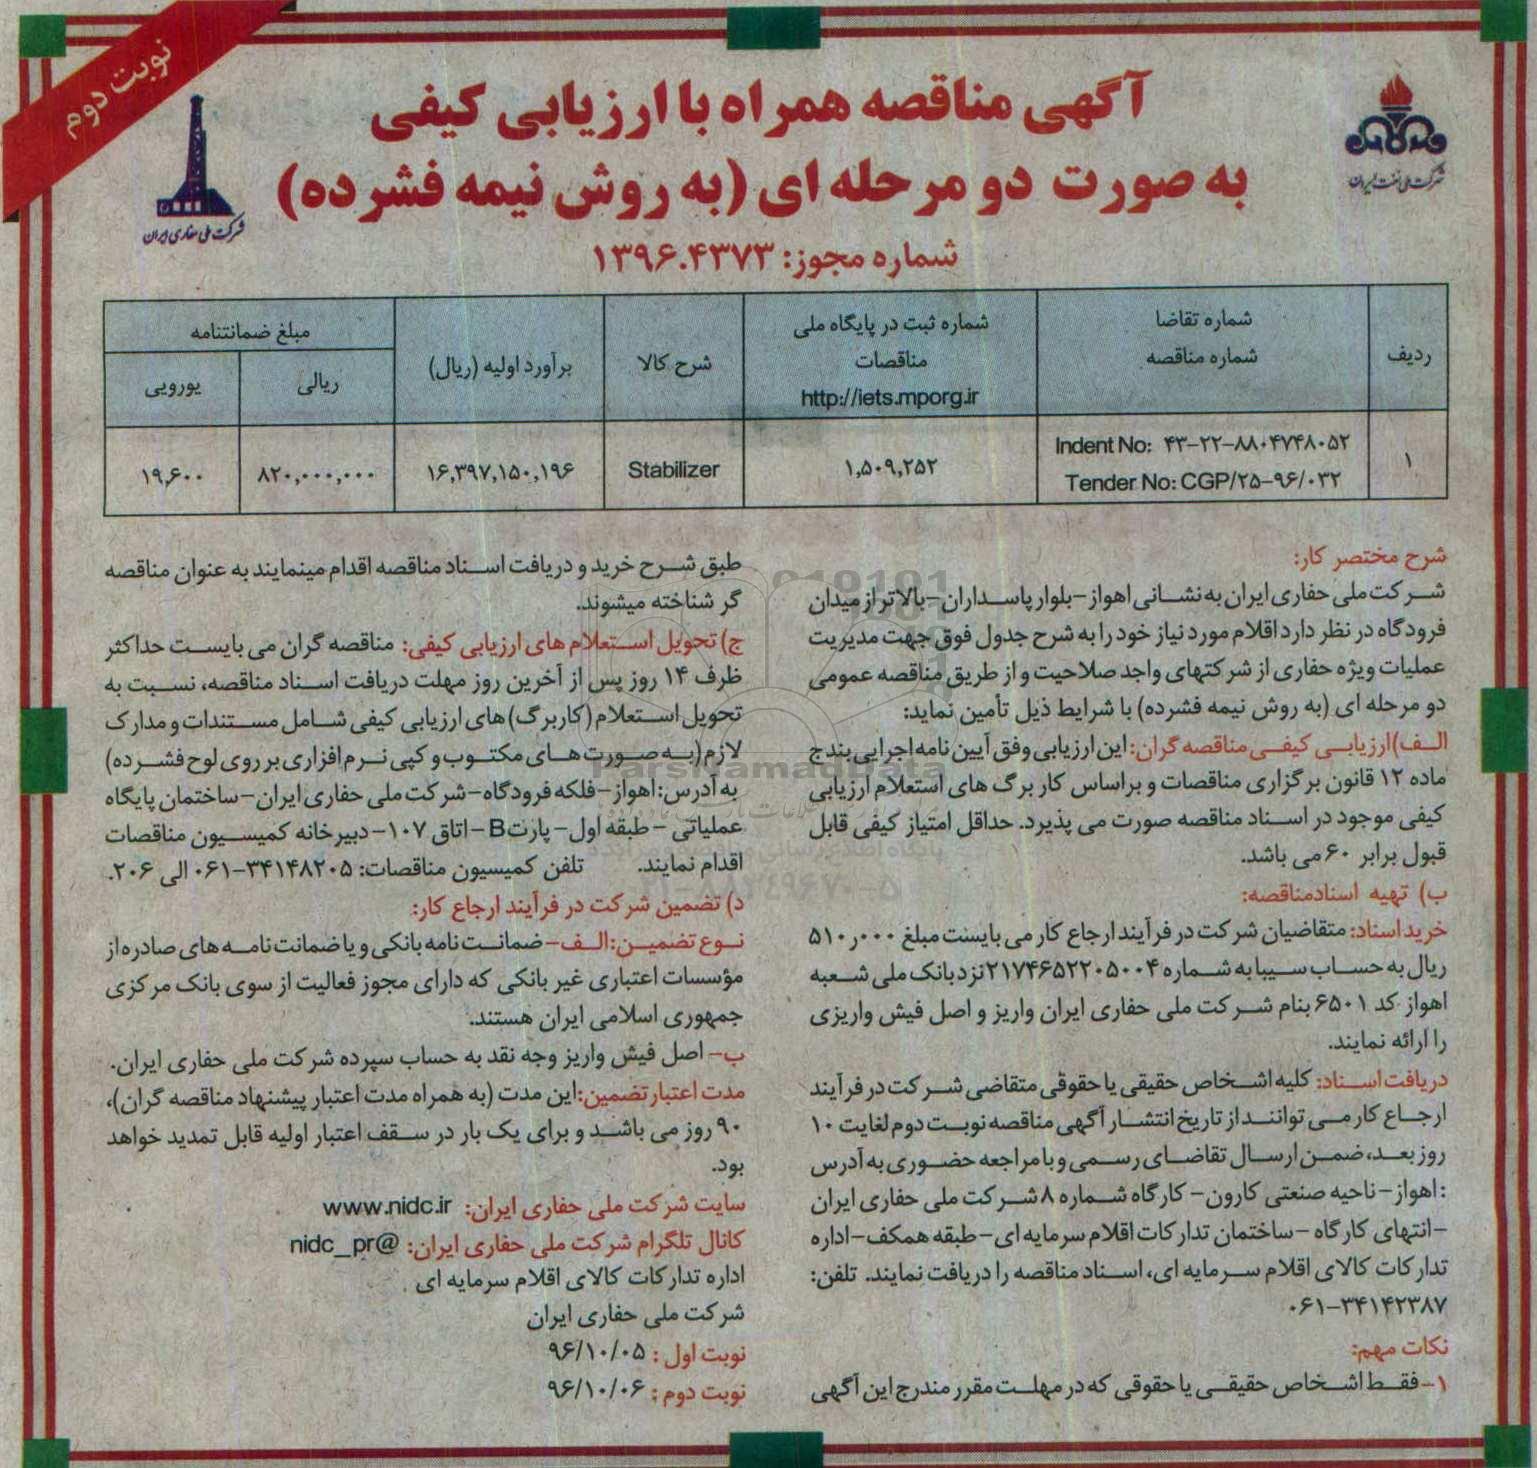 نوبت دوم
شرکت ملی نفت ایران
شرکت ملی حفاری ایران
آگهی مناقصه همراه با ارزیابی کیفی
به صورت دو مرحله ای (به روش نیمه فشرده)
شماره مجوز: ۱۳۹۶.۴۳۷۳
ردیف
شماره تقاضا
شماره مناقصه
شماره ثبت در پایگاه ملی
مناقصات
http://iets.mporg.ir
شرح کالا
برآورد اولیه (ریال)
مبلغ ضمانتنامه
ریالی
یورویی
۱
Indent No: ۴۳-۲۲-۸۸۰۴۷۴۸۰۵۲
Tender No: CGP/۲۵-۹۶/۰۳۲
۱,۵۰۹,۲۵۲
Stabilizer
۱۶,۳۹۷,۱۵۰,۱۹۶
۸۲۰,۰۰۰,۰۰۰
۱۹,۶۰۰
شرح مختصر کار:
شرکت ملی حفاری ایران به نشانی اهواز-بلوار پاسداران-بالاتر از میدان
فرودگاه در نظر دارد اقلام مورد نیاز خود را به شرح جدول فوق جهت مدیریت
عملیات ویژه حفاری از شرکتهای واجد صلاحیت و از طریق مناقصه عمومی
دو مرحله ای (به روش نیمه فشرده) با شرایط ذیل تأمین نماید:
الف) ارزیابی کیفی مناقصه گران: این ارزیابی وفق آیین نامه اجرایی بند ج
ماده ۱۲ قانون برگزاری مناقصات و براساس کار برگ های استعلام ارزیابی
کیفی موجود در اسناد مناقصه صورت می پذیرد. حداقل امتیاز کیفی قابل
قبول برابر ۶۰ می باشد.
ب) تهیه اسناد مناقصه:
خرید اسناد: متقاضیان شرکت در فرآیند ارجاع کار می بایست مبلغ ۵۱۰٫۰۰۰
ریال به حساب سیبا به شماره ۲۱۷۴۶۵۲۲۰۵۰۰۴ نزد بانک ملی شعبه
اهواز کد ۶۵۰۱ بنام شرکت ملی حفاری ایران واریز و اصل فیش واریزی
را ارائه نمایند.
دریافت اسناد: کلیه اشخاص حقیقی یا حقوقی متقاضی شرکت در فرآیند
ارجاع کار می توانند از تاریخ انتشار آگهی مناقصه نوبت دوم لغایت ۱۰
روز بعد، ضمن ارسال تقاضای رسمی و با مراجعه حضوری به آدرس
: اهواز- ناحیه صنعتی کارون- کارگاه شماره ۸ شرکت ملی حفاری ایران
-انتهای کارگاه -ساختمان تدارکات اقلام سرمایه ای- طبقه همکف-اداره
تدارکات کالای اقلام سرمایه ای، اسناد مناقصه را دریافت نمایند. تلفن:
۰۶۱-۳۴۱۴۲۳۸۷
نکات مهم:
۱-فقط اشخاص حقیقی یا حقوقی که در مهلت مقرر مندرج این آگهی
طبق شرح خرید و دریافت اسناد مناقصه اقدام مینمایند به عنوان مناقصه
گر شناخته میشوند.
ج) تحویل استعلام های ارزیابی کیفی: مناقصه گران می بایست حداکثر
ظرف ۱۴ روز پس از آخرین روز مهلت دریافت اسناد مناقصه، نسبت به
تحویل استعلام (کاربرگ) های ارزیابی کیفی شامل مستندات و مدارک
لازم (به صورت های مکتوب و کپی نرم افزاری بر روی لوح فشرده)
به آدرس: اهواز-فلکه فرودگاه-شرکت ملی حفاری ایران-ساختمان پایگاه
عملیاتی - طبقه اول- پارت B -اتاق ۱۰۷-دبیرخانه کمیسیون مناقصات
اقدام نمایند. تلفن کمیسیون مناقصات: ۳۴۱۴۸۲۰۵-۰۶۱ الی ۲۰۶.
د) تضمین شرکت در فرآیند ارجاع کار:
نوع تضمین: الف- ضمانت نامه بانکی و یا ضمانت نامه های صادره از
مؤسسات اعتباری غیر بانکی که دارای مجوز فعالیت از سوی بانک مرکزی
جمهوری اسلامی ایران هستند.
ب- اصل فیش واریز وجه نقد به حساب سپرده شرکت ملی حفاری ایران.
مدت اعتبار تضمین: این مدت (به همراه مدت اعتبار پیشنهاد مناقصه گران)،
۹۰ روز می باشد و برای یک بار در سقف اعتبار اولیه قابل تمدید خواهد
بود.
سایت شرکت ملی حفاری ایران: www.nidc.ir
کانال تلگرام شرکت ملی حفاری ایران: @nidc_pr
اداره تدارکات کالای اقلام سرمایه ای
شرکت ملی حفاری ایران
نوبت اول : ۹۶/۱۰/۰۵
نوبت دوم : ۹۶/۱۰/۰۶